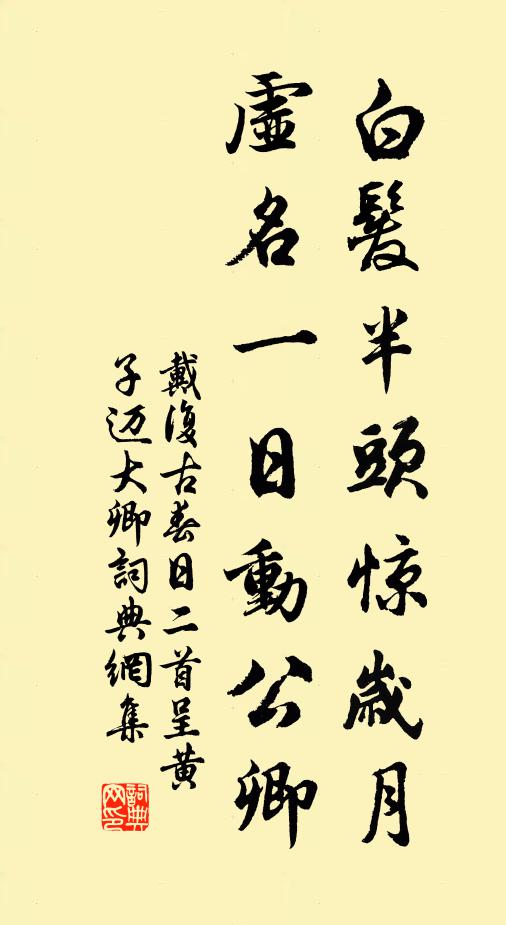 白髮半頭惊歲月
虛名一日動公卿
戴復古春日二首呈黄
子迈大卿詞典網集
詞典網印